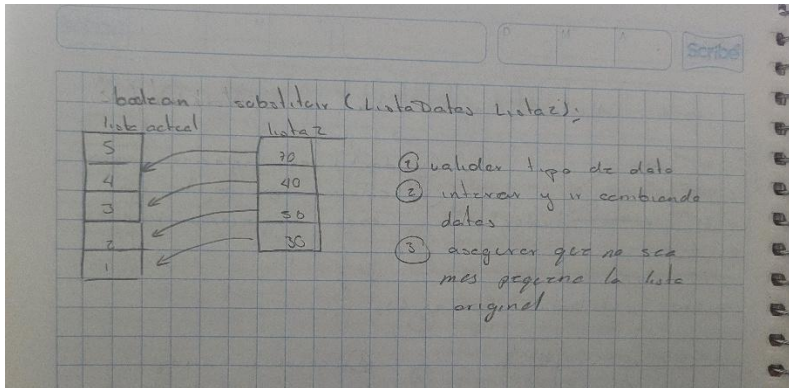 Scribe
D M A
boolean substituir (ListaDatos Lista2);
lista actual lista2
5
4
3
2
1
70
40
50
30
① validar tipo de dato
② interar y ir cambiando
datos
③ asegurar que no sea
mas pequeña la lista
original